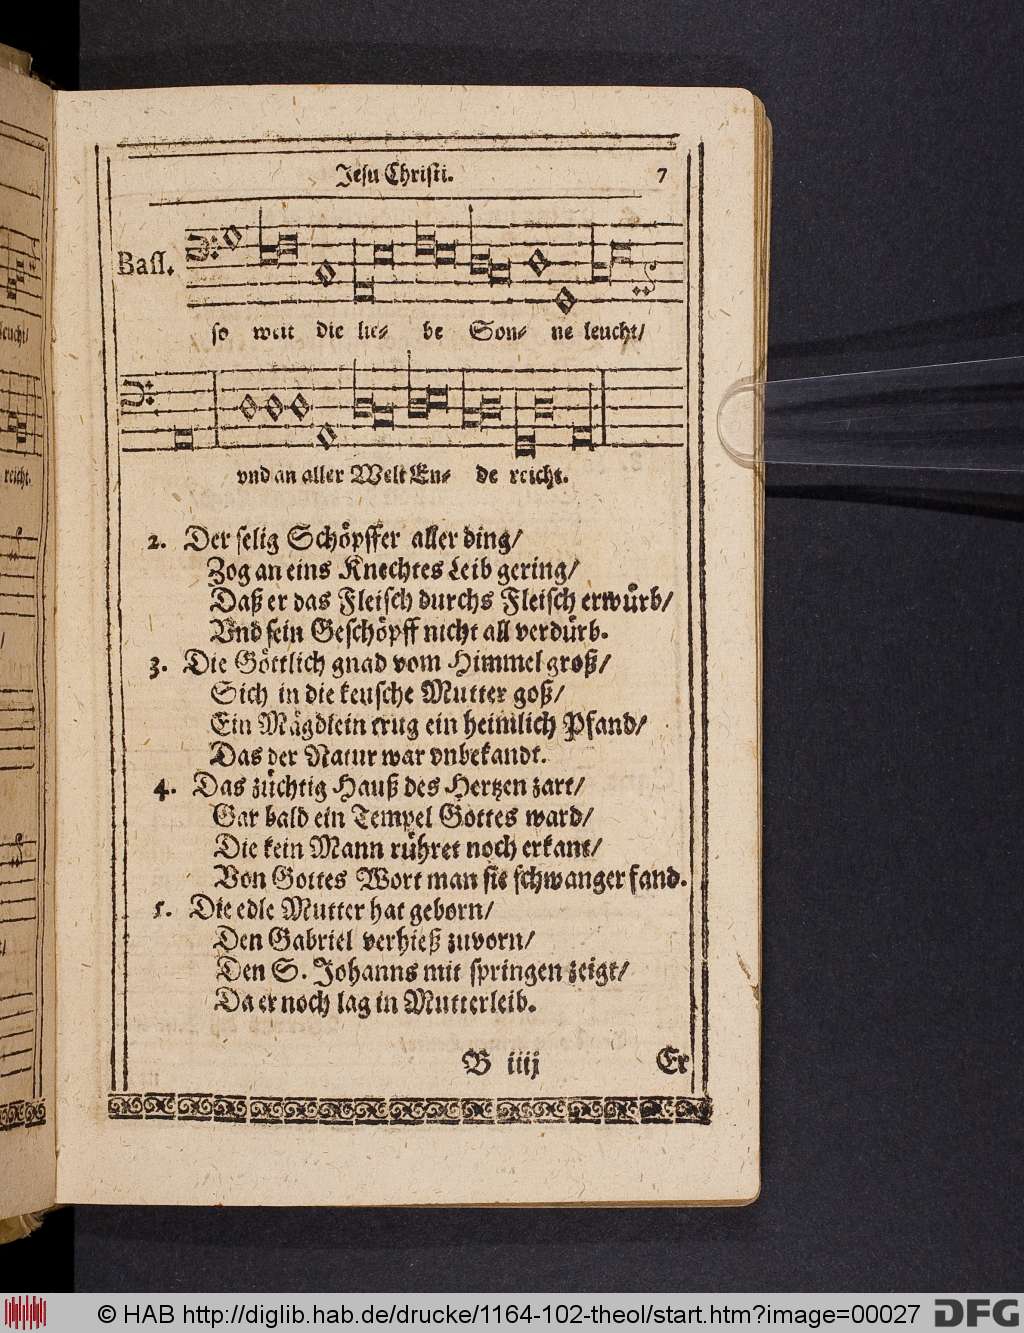 Jesu Christi. 7
Bass.
so weit die lie- be Son- ne leucht/
vnd an aller Welt En- de reicht.
2. Der selig Schöpffer aller ding/
Zog an eins Knechtes Leib gering/
Daß er das Fleisch durchs Fleisch erwürb/
Vnd sein Geschöpff nicht all verdürb.
3. Die Göttlich gnad vom Himmel groß/
Sich in die keusche Mutter goß/
Ein Mägdlein trug ein heimlich Pfand/
Das der Natur war vnbekandt.
4. Das züchtig Hauß des Hertzen zart/
Gar bald ein Tempel Gottes ward/
Die kein Mann rühret noch erkant/
Von Gottes Wort man sie schwanger fand.
5. Die edle Mutter hat geborn/
Den Gabriel verhieß zuvorn/
Den S. Johanns mit springen zeigt/
Da er noch lag in Mutterleib.
B iiij Er
leucht/
reicht.
© HAB http://diglib.hab.de/drucke/1164-102-theol/start.htm?image=00027 DFG